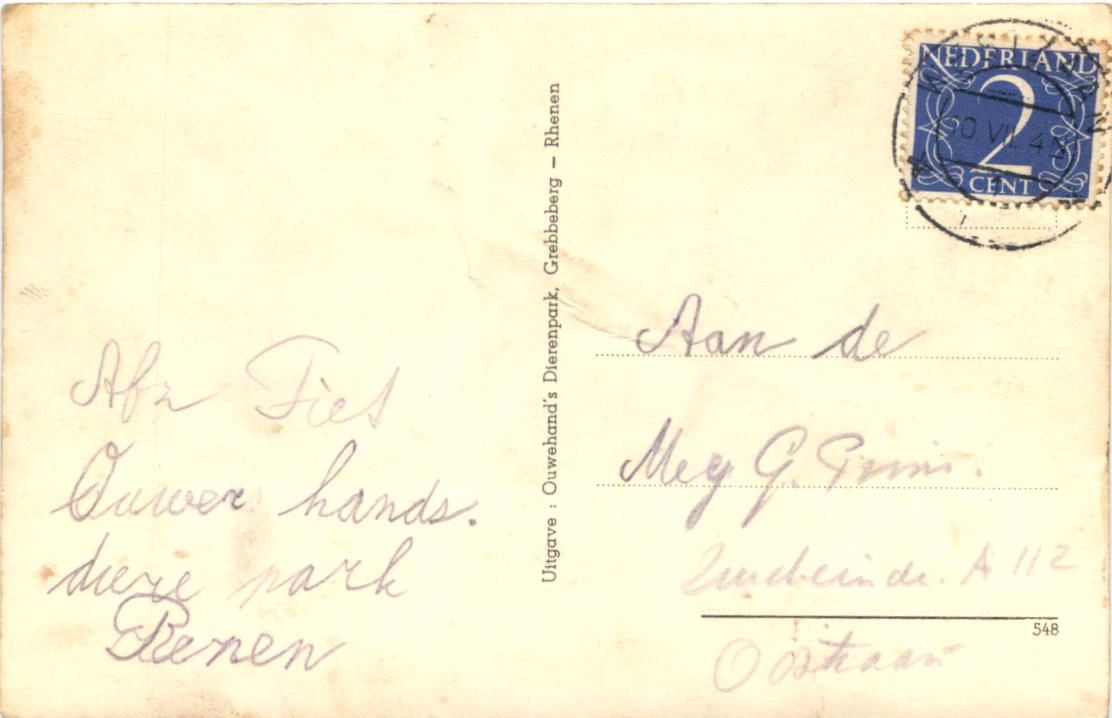 Afz Fiet
Ouwer hands.
diere park
Renen
Uitgave : Ouwehand's Dierenpark, Grebbeberg – Rhenen
NEDERLAND
2
CENT
10 VII 4
Aan de
Mej G.
A 112
548